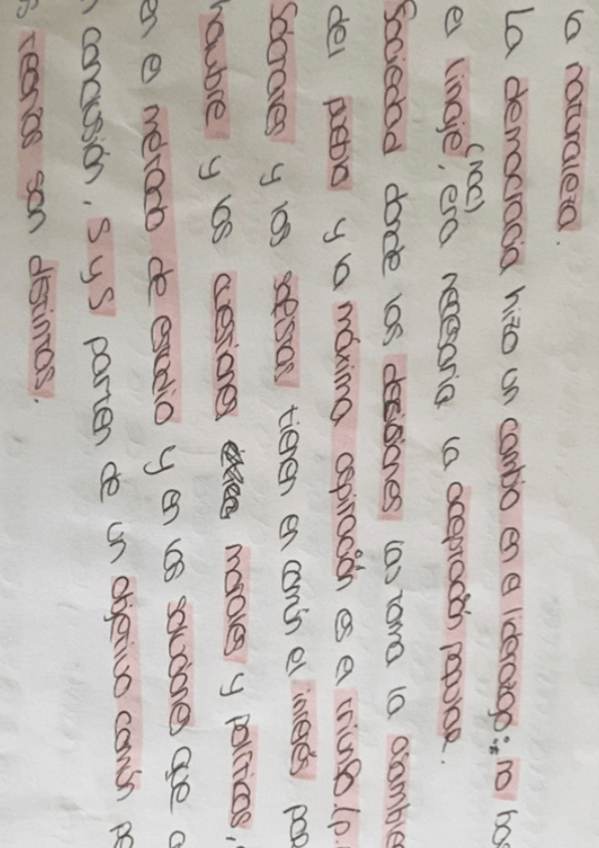 la naturaleza.
La democracia hizo un cambio en el liderazgo: no bas
el linaje, (noc) era necesaria la aceptación popular.
Sociedad donde las decisiones las toma la asamble
del patria y la máxima aspiración es el triunfo (p.
Sócrates y los sofistas tienen en común el interés po
hombre y las cuestiones morales y políticas,
en el método de estudio y en las soluciones que a
n conclusión, S y S parten de un objetivo común p
s teorías son distintas.